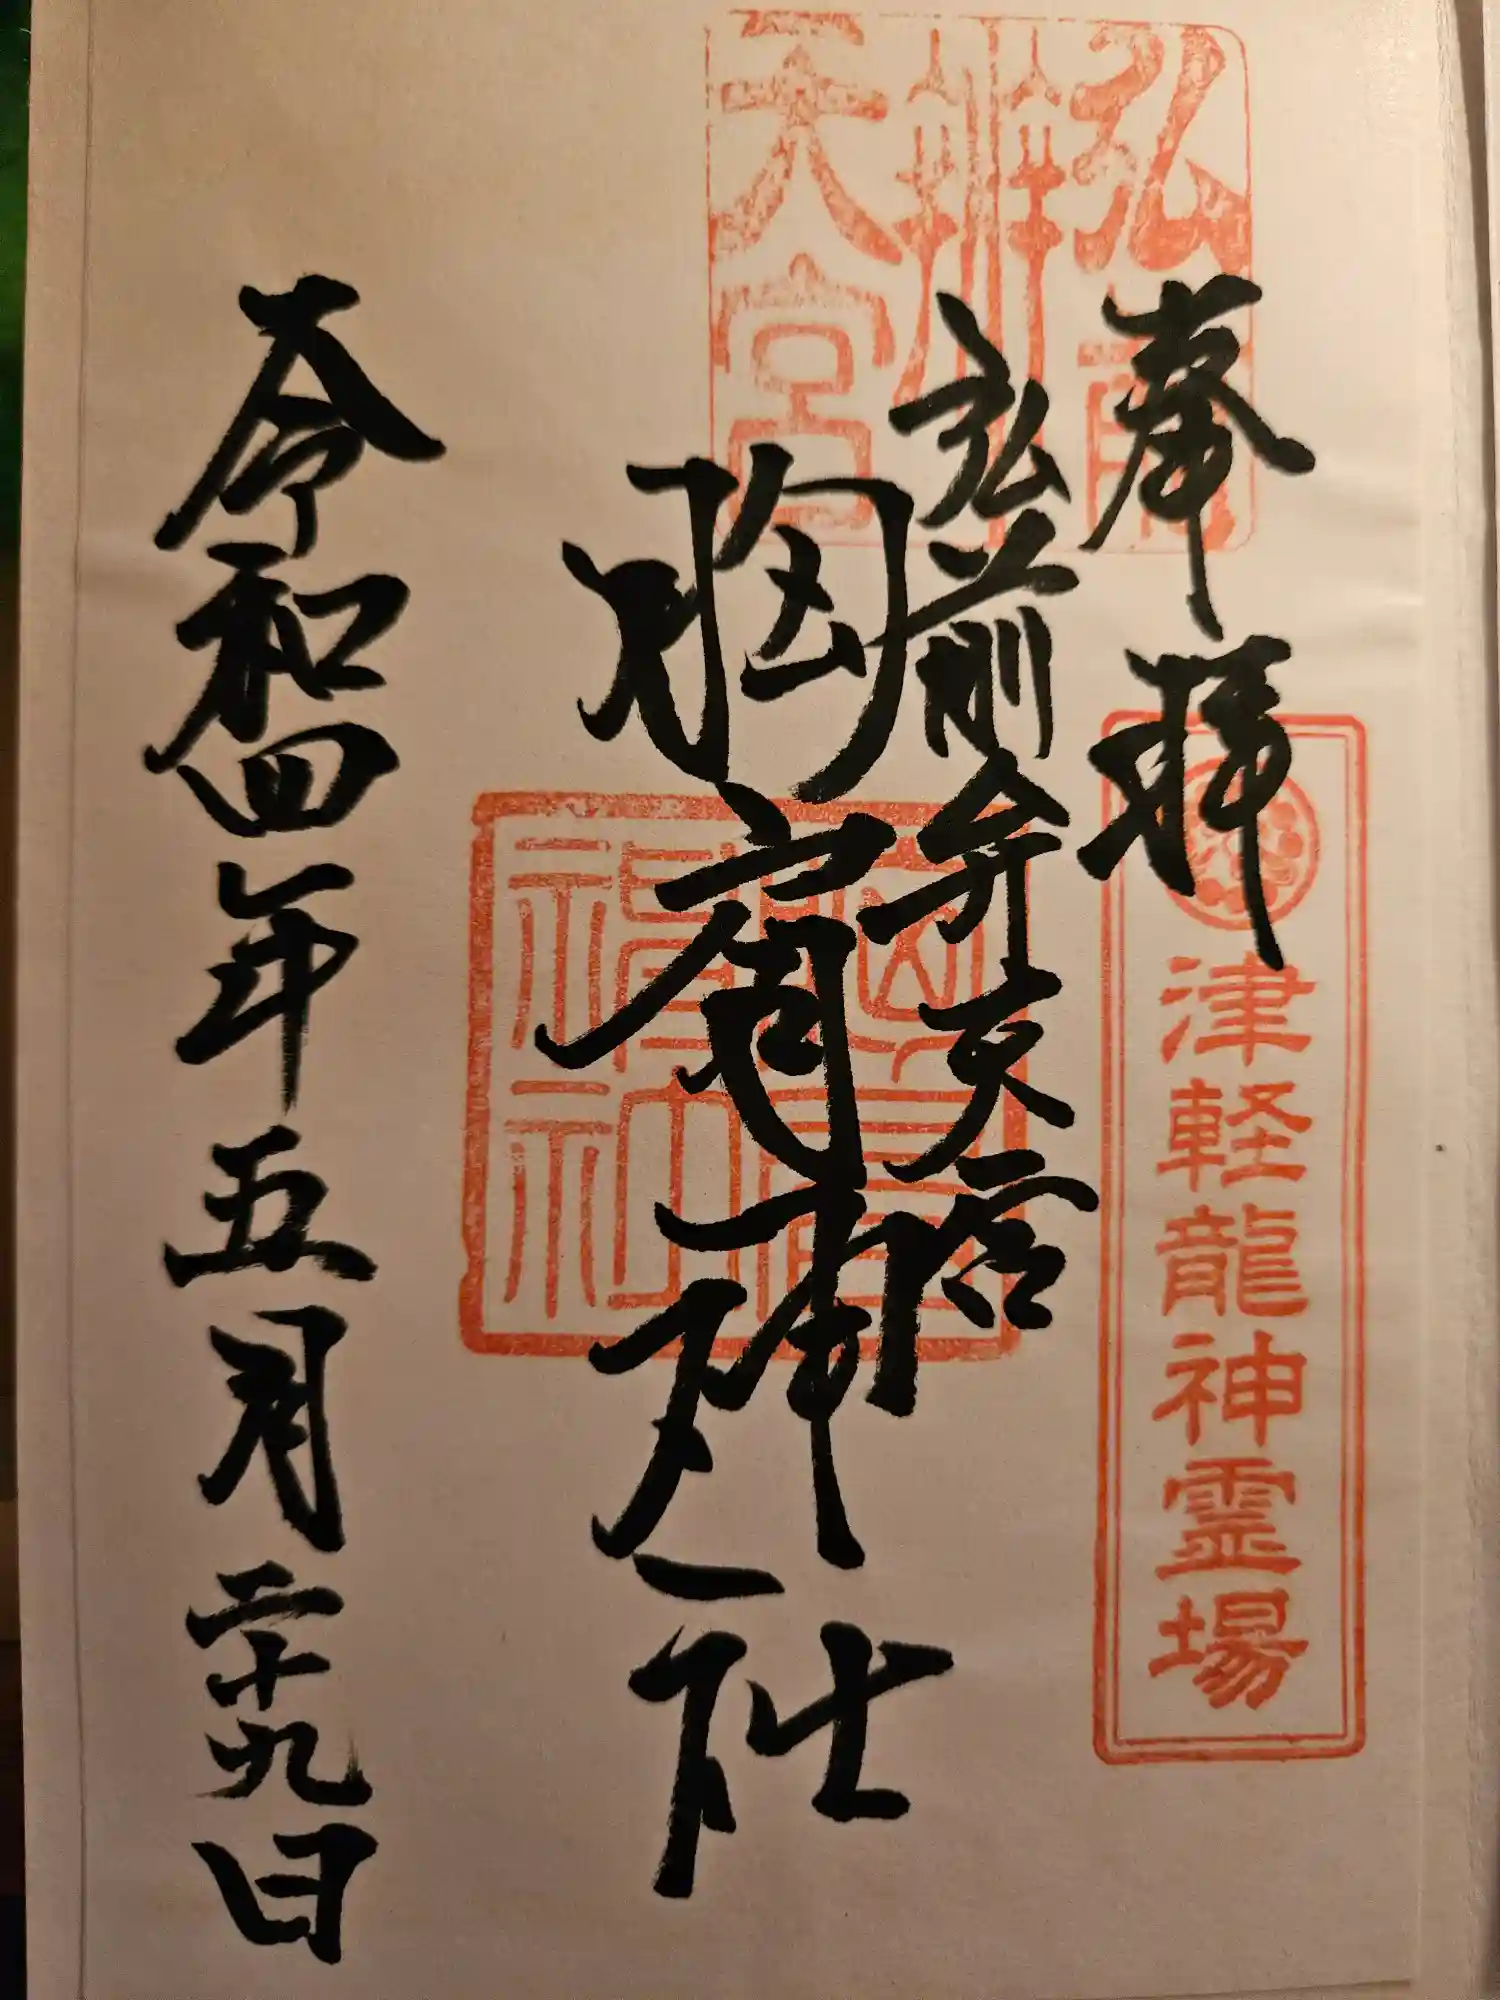 奉拝
津軽龍神霊場
弘前
辨
天宮
弘前弁天宮
胸肩神社
胸肩
神社
令和四年五月二十九日